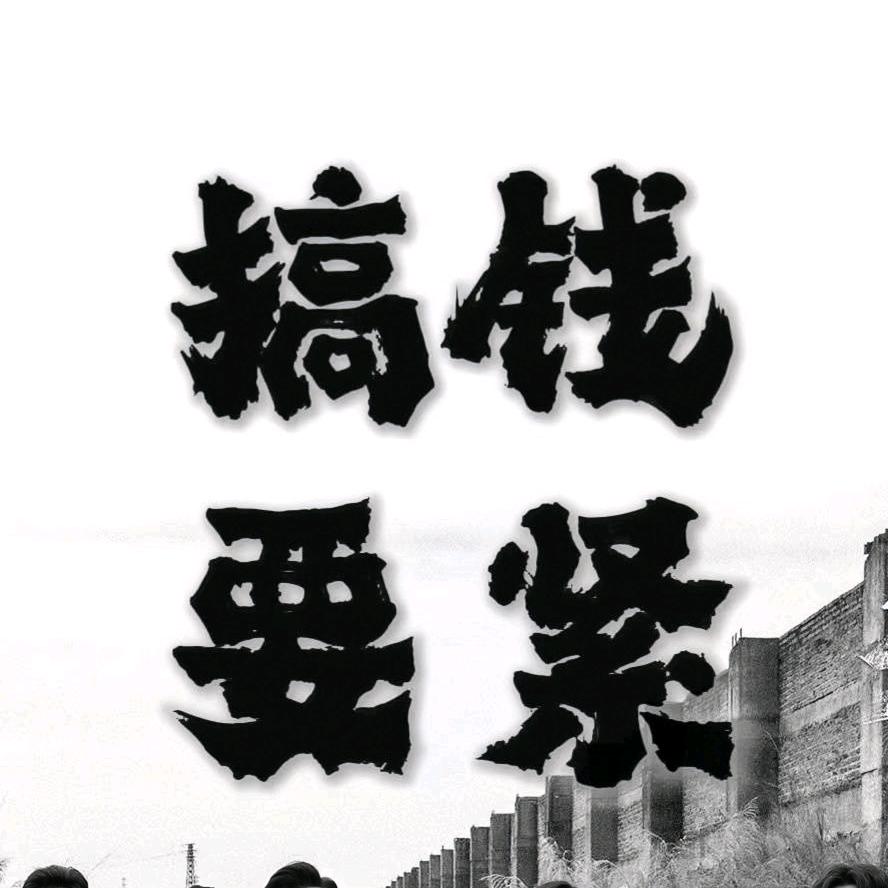 搞钱
要紧